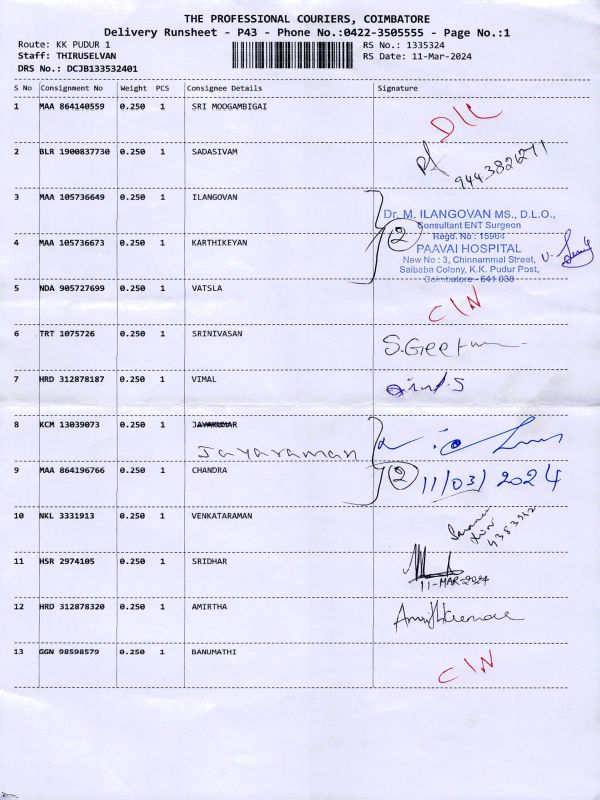 THE PROFESSIONAL COURIERS, COIMBATORE
Delivery Runsheet - P43 - Phone No.:0422-3505555 - Page No.:1
Route: KK PUDUR 1
Staff: THIRUSELVAN
DRS No.: DCJB133532401
RS No.: 1335324
RS Date: 11-Mar-2024
S No Consignment No Weight PCS Consignee Details Signature
1 MAA 864140559 0.250 1 SRI MOOGAMBIGAI
D/L
2 BLR 1900837730 0.250 1 SADASIVAM
9443826271
3 MAA 105736649 0.250 1 ILANGOVAN
Dr. M. ILANGOVAN MS., D.L.O.,
Consultant ENT Surgeon
Regd. No : 15964
4 MAA 105736673 0.250 1 KARTHIKEYAN
2
PAAVAI HOSPITAL
New No : 3, Chinnammal Street,
Saibaba Colony, K.K. Pudur Post,
Coimbatore - 641 038
5 NDA 905727699 0.250 1 VATSLA
C/N
6 TRT 1075726 0.250 1 SRINIVASAN
S.Geetha
7 HRD 312878187 0.250 1 VIMAL
8 KCM 13039073 0.250 1 JAYAKUMAR
Jayaraman
9 MAA 864196766 0.250 1 CHANDRA
2
11/03/2024
10 NKL 3331913 0.250 1 VENKATARAMAN
11 HSR 2974105 0.250 1 SRIDHAR
11-MAR-2024
12 HRD 312878320 0.250 1 AMIRTHA
13 GGN 98598579 0.250 1 BANUMATHI
C/N